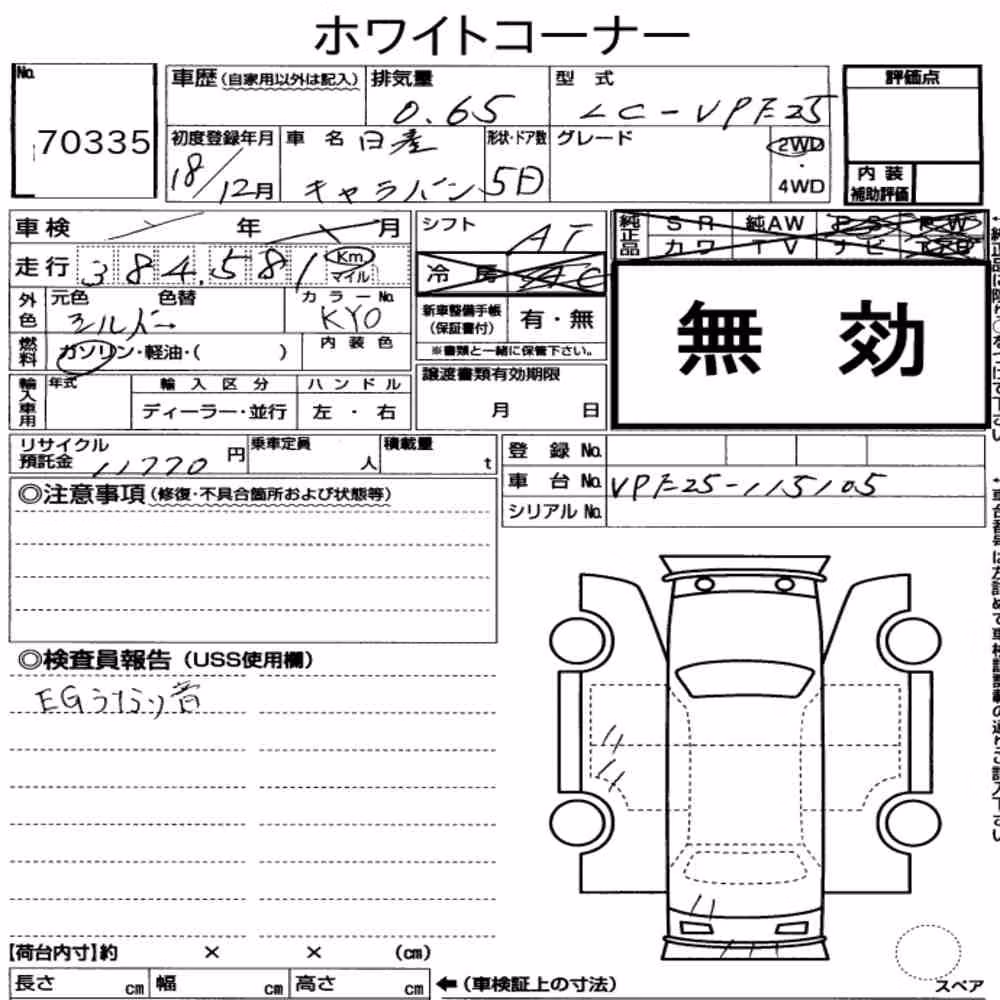 ホワイトコーナー
No. 70335
車歴 (自家用以外は記入) 排気量 0.65 型式 LC-VPE25 評価点
初度登録年月 18/12月 車名 日産 キャラバン 形状・ドア数 5D グレード 2WD ・ 4WD 内装補助評価
車検 年 月 シフト AT 純正品 SR 純AW PS PW
走行 384,581 Km マイル 冷房 AC カワ TV ナビ
外色 元色 色替 シルバー カラーNo. KYO 新車整備手帳(保証書付) 有・無
無 効
燃料 ガソリン・軽油・( ) 内装色 ※書類と一緒に保管下さい。
輸入車用 年式 輸入区分 ハンドル 譲渡書類有効期限
ディーラー・並行 左・右 月 日
リサイクル預託金 11770円 乗車定員 人 積載量 t 登録No.
車台No. VPE25-115105
シリアルNo.
◎注意事項 (修復・不具合箇所および状態等)
◎検査員報告 (USS使用欄)
EGうなり音
【荷台内寸】約 × × (cm)
長さ cm 幅 cm 高さ cm ←(車検証上の寸法)
スペア